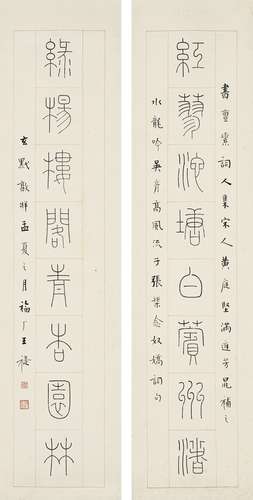 紅蓼池塘白蘋洲渚
書詞人集宋人黃庭堅滿庭芳晁補之
水龍吟吳彥高風流子張念奴嬌詞句
綠楊樓閣青杏園林
玄黓敦牂孟夏之月福厂王禔